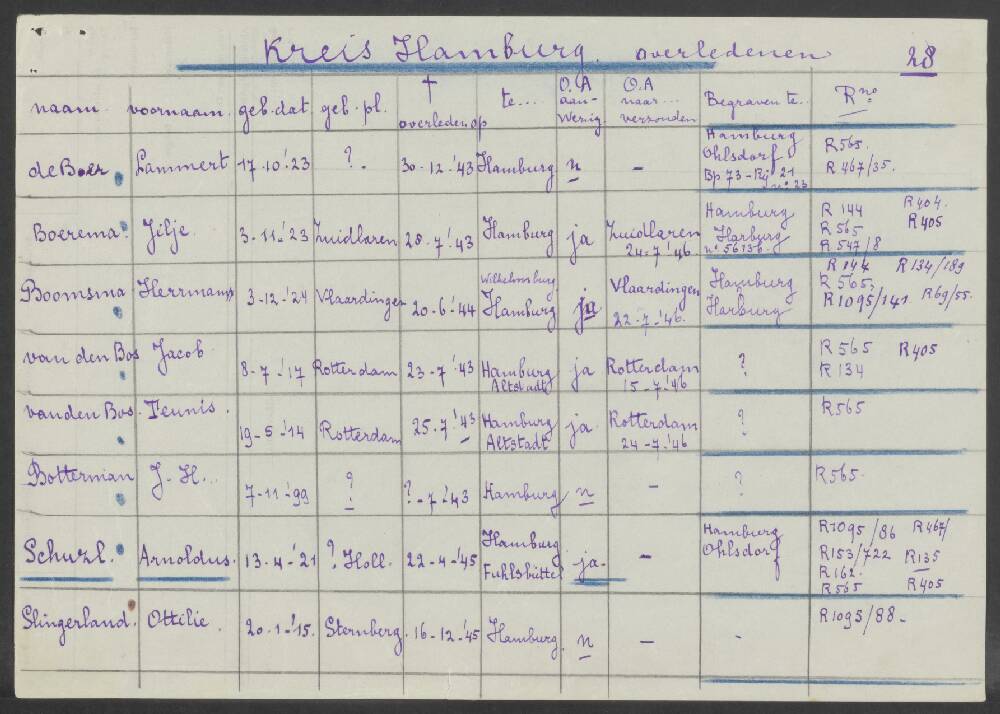 Kreis Hamburg. overledenen 28
naam. voornaam. geb. dat. geb. pl. † overleden op te... O.A aan-wezig. O.A naar... verzonden Begraven te.. R no
de Boer Lammert 17-10-'23 ? 30-12-'43 Hamburg n - Hamburg Ohlsdorf Bp 73 - Rij 21 no 23 R565. R467/35.
Boerema Jilje 3-11-'23 Zuidlaren 28-7-'43 Hamburg ja Zuidlaren 24-7-'46 Hamburg Harburg no 56136 R144 R404. R565 R405 R547/8
Boomsma Hermanus 3-12-'24 Vlaardingen 20-6-'44 Wilhelmsburg Hamburg ja Vlaardingen 22-7-'46 Hamburg Harburg R144 R134/189 R565, R1095/141 R69/55.
van den Bos Jacob 8-7-'17 Rotterdam 23-7-'43 Hamburg Altstadt ja Rotterdam 15-7-'46 ? R565 R405 R134
van den Bos. Teunis. 19-5-'14 Rotterdam 25-7-'43 Hamburg Altstadt ja Rotterdam 24-7-'46 ? R565
Botterman J. H. 7-11-'99 ? ?-7-'43 Hamburg n - ? R565.
Schurl. Arnoldus. 13-4-'21 ? Holl. 22-4-'45 Hamburg Fuhlsbüttel ja. - Hamburg Ohlsdorf R1095/86 R467/ R153/722 R135 R162. R565 R405
Slingerland. Ottilie. 20-1-'15. Sternberg. 16-12-'45 Hamburg. n - - R1095/88-